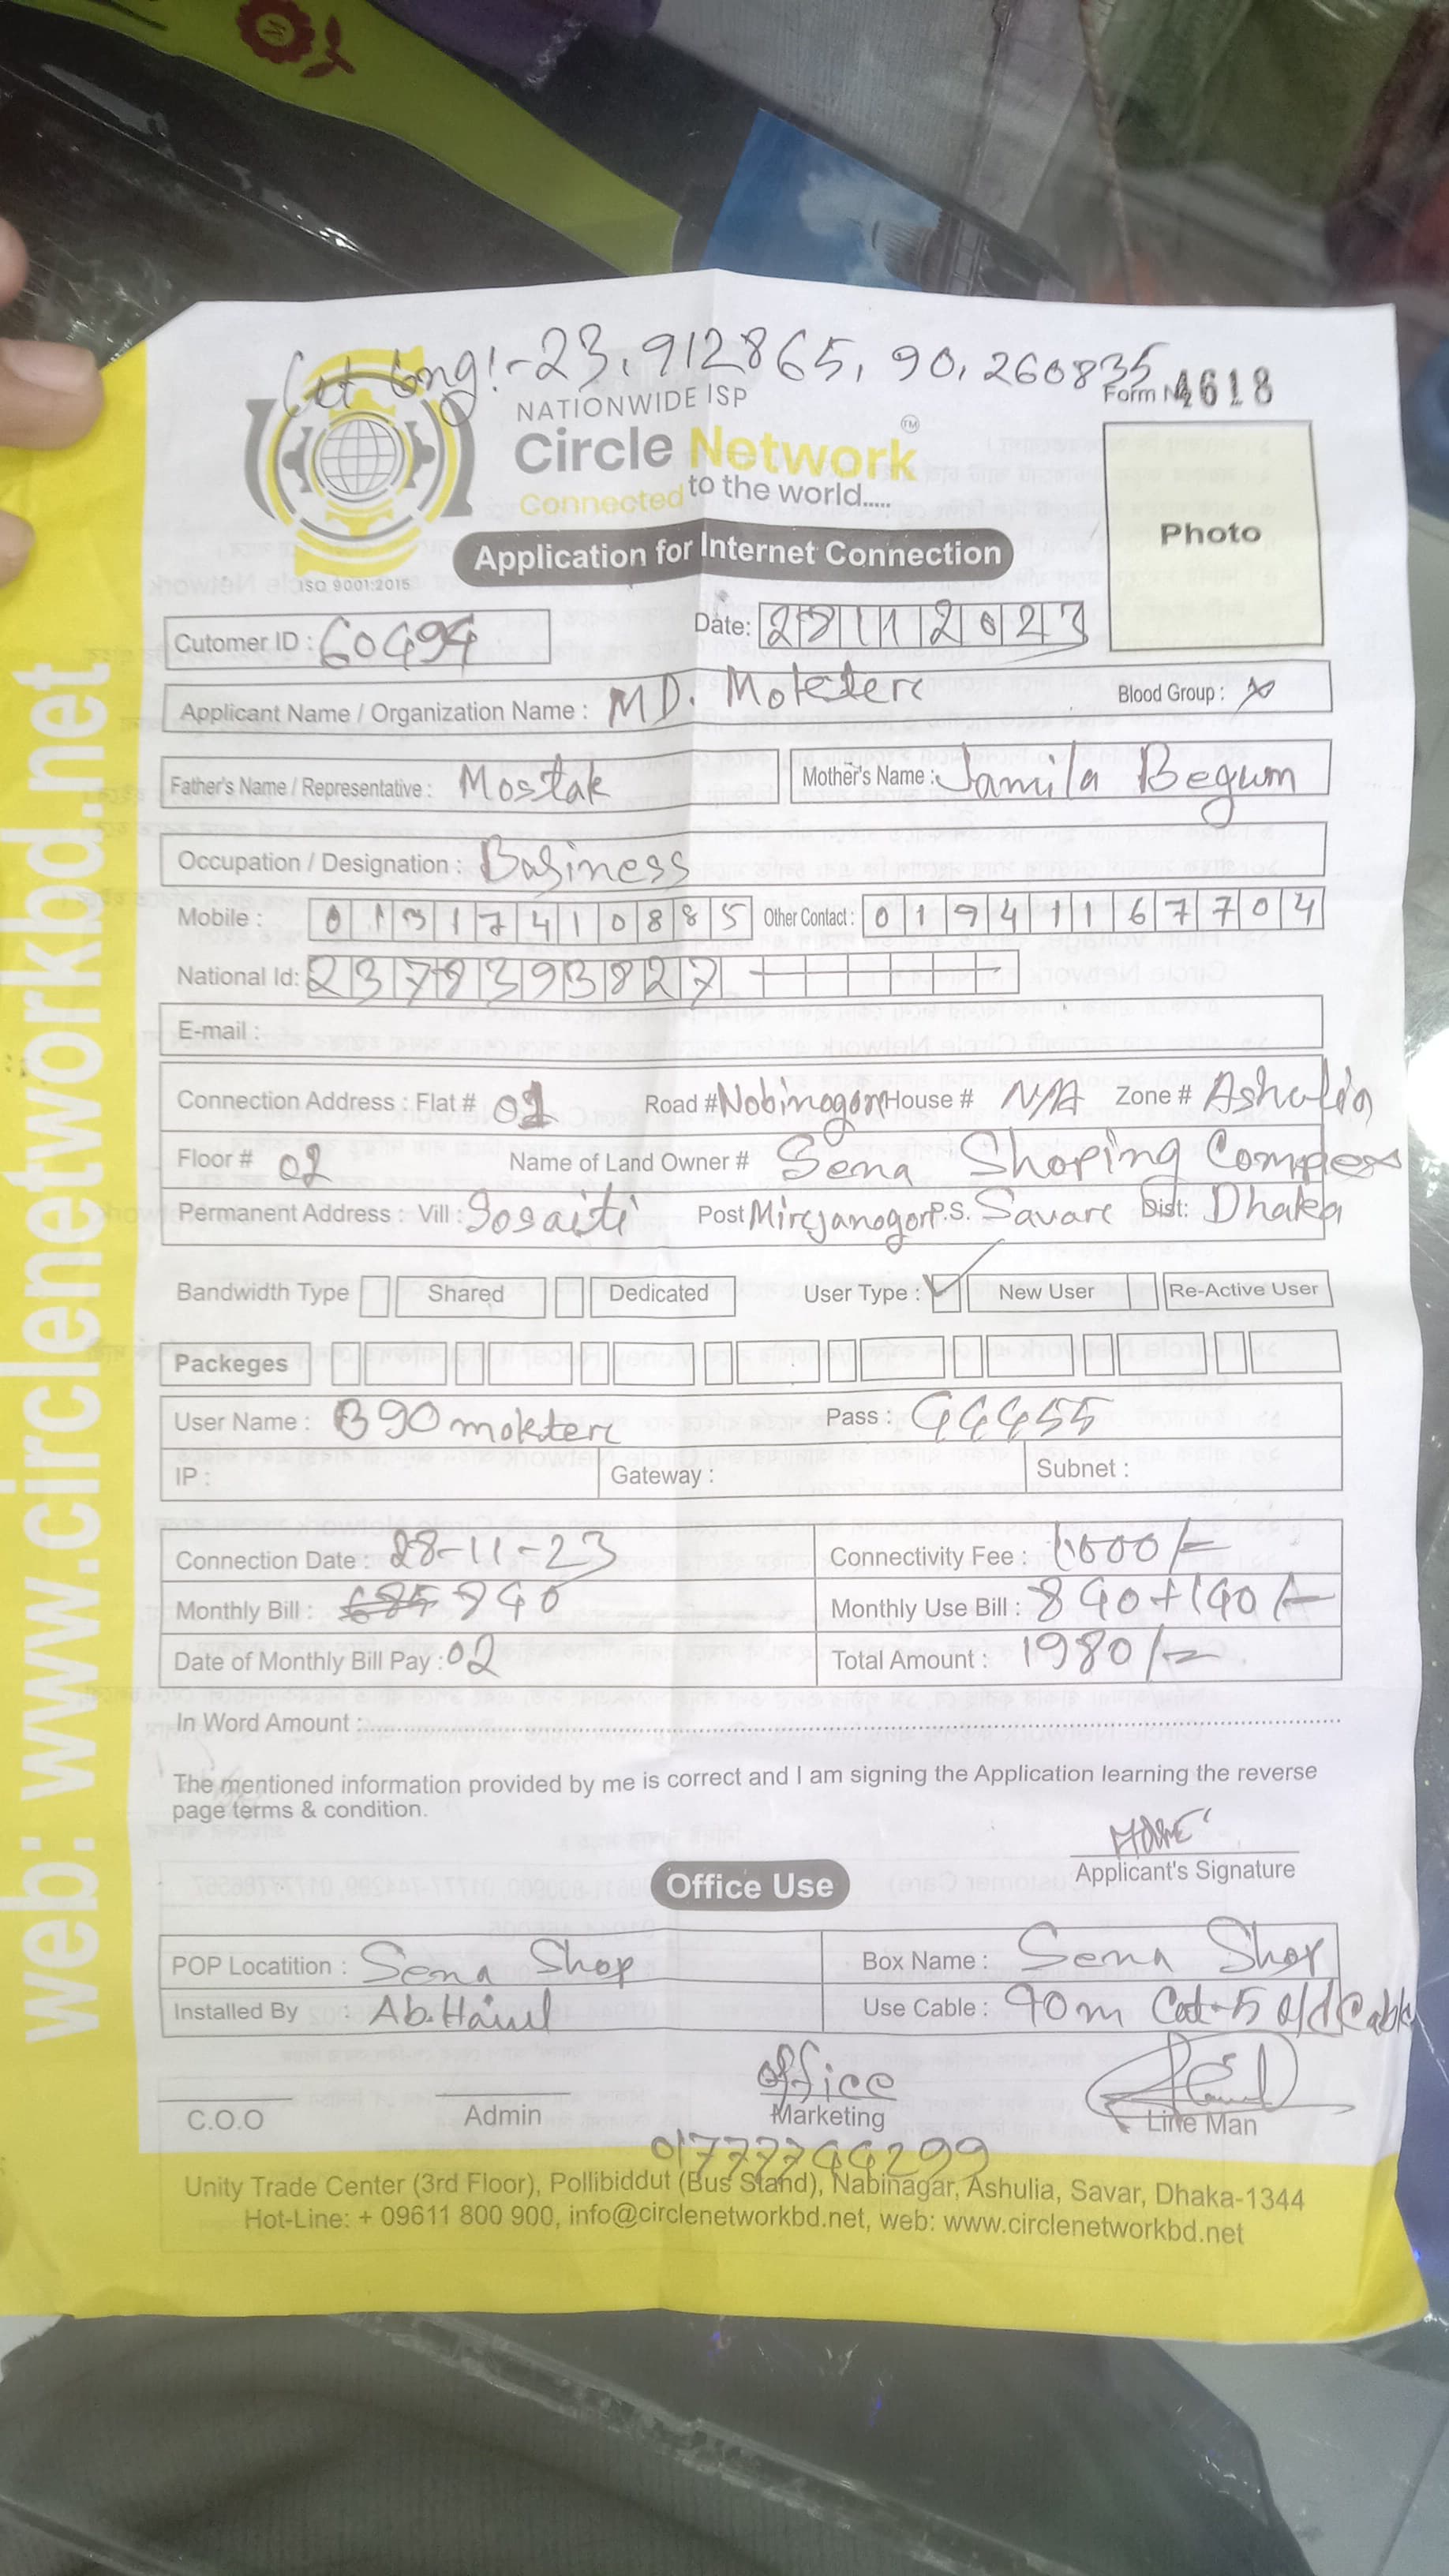 Lat Long:-23.912865, 90.260835
Form No 4618
NATIONWIDE ISP
Circle Network TM
Connected to the world.....
ISO 9001:2015
Application for Internet Connection
Photo
Cutomer ID : 60494
Date: 28112023
Applicant Name / Organization Name : MD. Mokter Blood Group : x
Father's Name / Representative : Mostak Mother's Name : Jamila Begum
Occupation / Designation : Business
Mobile : 01317410885 Other Contact : 01941167704
National Id: 2378393827
E-mail :
Connection Address : Flat # 02 Road # Nobinogor House # N/A Zone # Ashulia
Floor # 02 Name of Land Owner # Sena Shoping Complex
Permanent Address : Vill : Sosaiti Post Mirzanogor P.S. Savar Dist: Dhaka
Bandwidth Type Shared Dedicated User Type : ✓ New User Re-Active User
Packeges
User Name : B90mokter Pass : 44455
IP : Gateway : Subnet :
Connection Date : 28-11-23 Connectivity Fee : 1000/-
Monthly Bill : 840 Monthly Use Bill : 840+140/-
Date of Monthly Bill Pay : 02 Total Amount : 1980/-
In Word Amount :
The mentioned information provided by me is correct and I am signing the Application learning the reverse
page terms & condition.
Applicant's Signature
Office Use
POP Locatition : Sena Shop Box Name : Sena Shop
Installed By : Ab. Use Cable : 90m Cat-5 old Cable
office
C.O.O Admin Marketing Line Man
01777744299
Unity Trade Center (3rd Floor), Pollibiddut (Bus Stand), Nabinagar, Ashulia, Savar, Dhaka-1344
Hot-Line: + 09611 800 900, info@circlenetworkbd.net, web: www.circlenetworkbd.net
web: www.circlenetworkbd.net